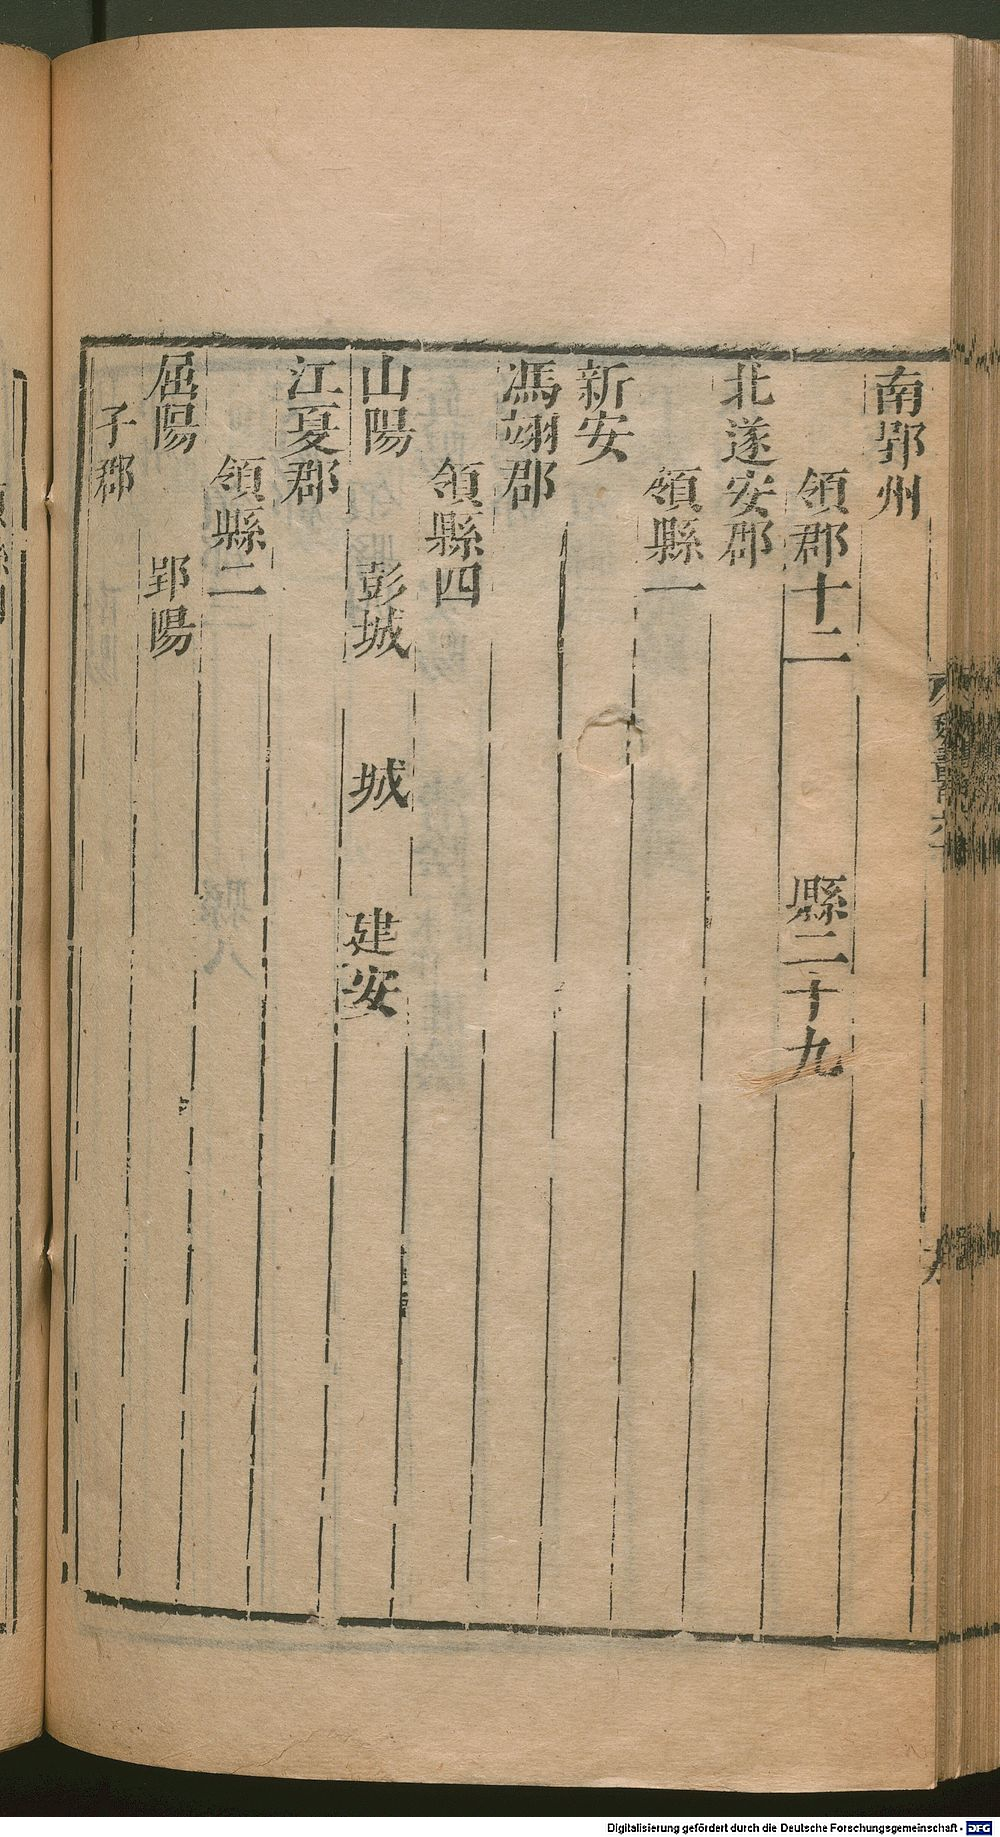 南郢州
領郡十二 縣二十九
北遂安郡
領縣一
新安
馮翊郡
領縣四
山陽 彭城 城 建安
江夏郡
領縣二
屈陽 郢陽
子郡
Digitalisierung gefördert durch die Deutsche Forschungsgemeinschaft - DFG